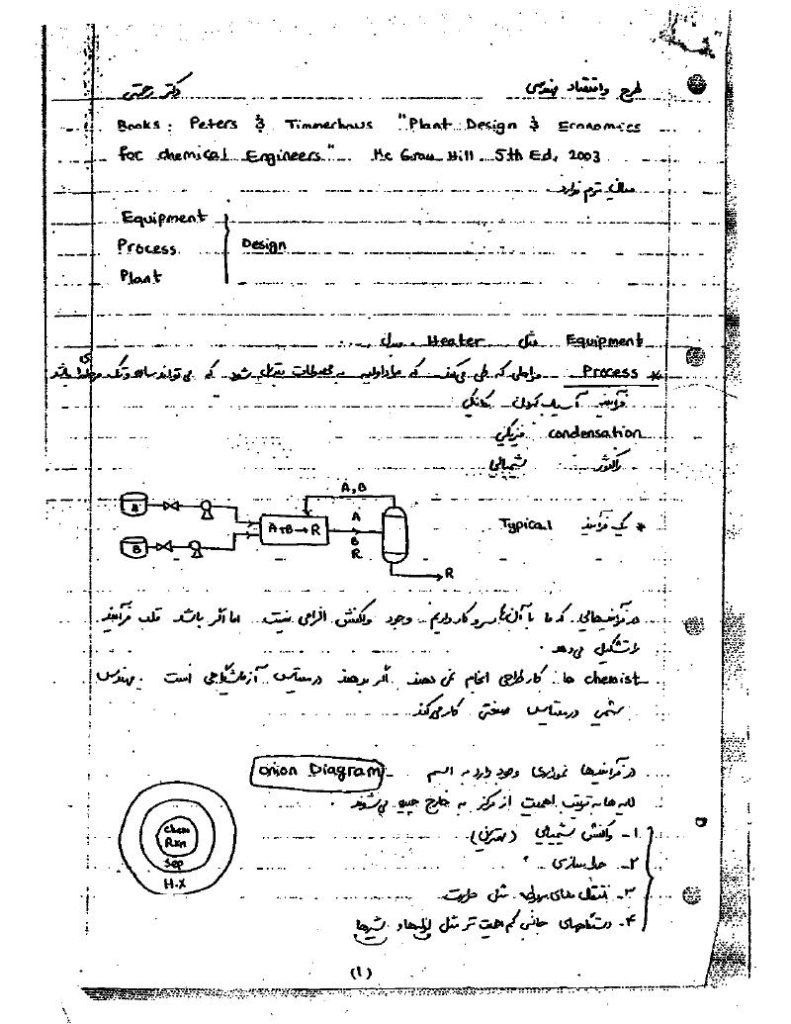 طرح و اقتصاد مهندسی
دکتر رحمتی
Books: Peters & Timmerhaus "Plant Design & Economics
for chemical Engineers" Mc Graw Hill 5th Ed, 2003
میان ترم ندارد
Equipment
Process
Plant
Design
Equipment مثل Heater، مبدل
* Process مراحلی که طی می‌کند که مواد اولیه به محصولات تبدیل شود که می‌تواند ساده و تک مرحله‌ای باشد
فرآیند آسیاب کردن مکانیکی
condensation فیزیکی
راکتور شیمیایی
* یک فرآیند Typical
A
B
A+B→R
A
B
R
A,B
R
در فرآیندهایی که ما با آن‌ها سروکار داریم وجود واکنش الزامی نیست اما اگر باشد قلب فرآیند
را تشکیل می‌دهد.
chemist ها کار طراحی انجام نمی دهند اگر بدهند در مقیاس آزمایشگاهی است. مهندس
شیمی در مقیاس صنعتی کار می‌کند
در فرآیندها نموداری وجود دارد به اسم Onion Diagram
لایه ها به ترتیب اهمیت از مرکز به خارج چیده می‌شوند
Chem
Rxn
Sep
H.X
۱- واکنش شیمیایی (مهمترین)
۲- جداسازی
۳- انتقال های مربوطه مثل حرارت
۴- دستگاههای جانبی کم اهمیت تر مثل لوله‌ها و شیرها
(۱)